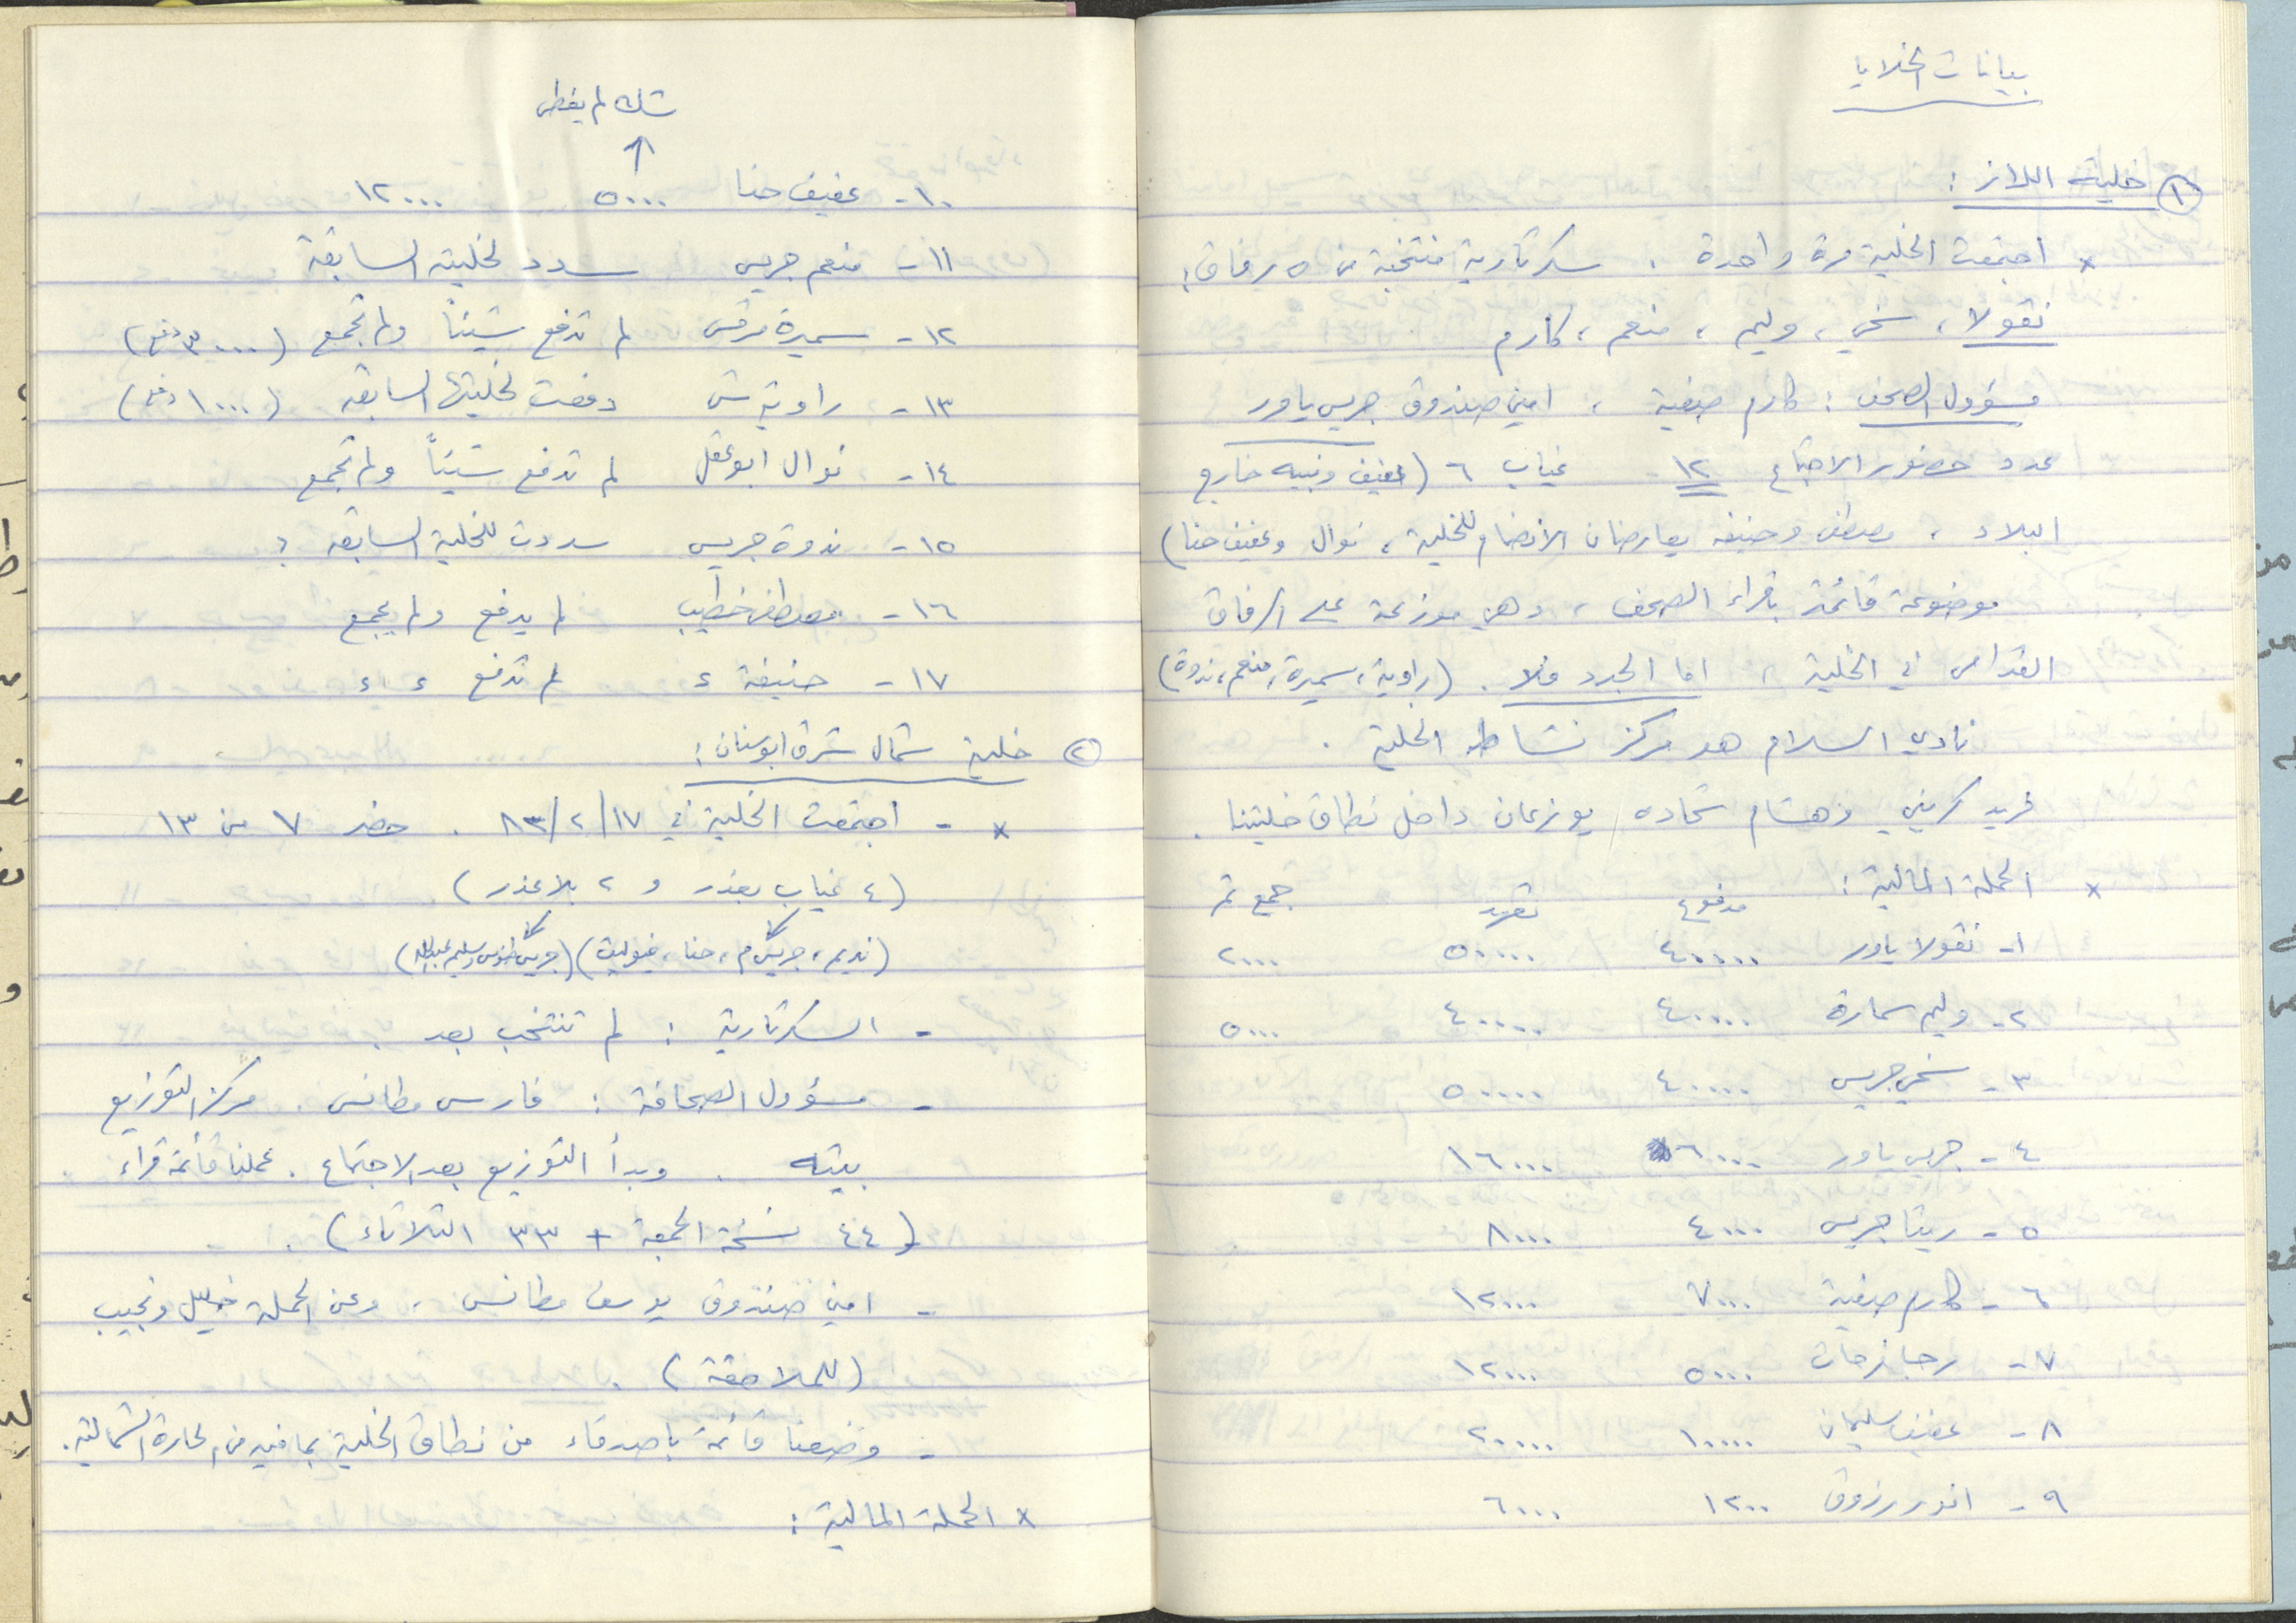 بيانات الخلايا
① خلية اللاز :
* اجتمعت الخلية مرة واحدة . سكرتارية منتخبة من ٥ رفاق :
نقولا ، سخي ، وليم ، منعم ، كارم
مسؤول الصحف : كارم صفية ، امين صندوق جريس ياور
عدد حضور الاجتماع ١٢ غياب ٦ ( عفيف ونبيه خارج
البلاد ، مصطفى وحنيفه يعارضان الانضمام للخلية ، نوال وعفيف حنا )
موضوعة قائمة بقراء الصحف ، وهي موزعة على الرفاق
القدامى في الخلية ، اما الجدد فلا . ( راوية ، سميرة ، منعم ، ندوة )
نادي السلام هو مركز نشاط الخلية .
فريد كريني وهشام شحاده يوزعان داخل نطاق خليتنا .
* الحملة المالية : مدفوع تعهد جمع تم
١- نقولا ياور ٤٠٠٠٠٠ ٥٠٠٠٠ ٢٠٠٠
٢- وليم سمارة ٤٠٠٠٠ ٤٠٠٠٠ ٥٠٠٠
٣- سخي جريس ٤٠٠٠٠ ٥٠٠٠٠
٤- جريس ياور ٦٠٠٠ ١٦٠٠٠
٥- ريتا جريس ٤٠٠٠ ٨٠٠٠
٦- كارم صفية ٧٠٠٠ ١٢٠٠٠
٧- رجا فرحات ٥٠٠٠ ١٢٠٠٠
٨- عفيف سليمان ١٠٠٠٠ ٢٠٠٠٠
٩- اندور رزوق ١٢٠٠ ٦٠٠٠
شك لم يغطى
↑
١٠- عفيف حنا ٥٠٠٠ ١٢٠٠٠
١١- منعم جريس سدد لخليته السابقة
١٢- سميرة مرقس لم تدفع شيئاً ولم تجمع ( ٣٠٠٠ دفع )
١٣- راوية دفعت لخليتها السابقه ( ١٠٠٠ دفع )
١٤- نوال ابو عقل لم تدفع شيئاً ولم تجمع
١٥- ندوة جريس سددت للخلية السابقه ؟
١٦- مصطفى خطيب لم يدفع ولم يجمع
١٧- حنيفة ء لم تدفع ء ء
② خلية شمال شرق ابوسنان :
* - اجتمعت الخلية في ١٧ / ٢ / ٨٣ . حضر ٧ من ١٣
( ٤ غياب بعذر و ٢ بلا عذر )
( نديم ، جريس م ، حنا ، فيوليت ) ( جريس طنوس وسليم عبدالله )
- السكرتارية : لم تنتخب بعد .
- مسؤول الصحافة : فارس مطانس . مركز التوزيع
بيته . وبدأ التوزيع بعد الاجتماع . عملنا قائمة قراء
( ٤٤ نسخة الجمعة + ٣٣ الثلاثاء ) .
- امين صندوق يوسف مطانس ، وعن الحملة خليل ونجيب
( للملاحقة ) .
- وضعنا قائمة باصدقاء من نطاق الخلية بما فيه من الحارة الشمالية .
* الحملة المالية :